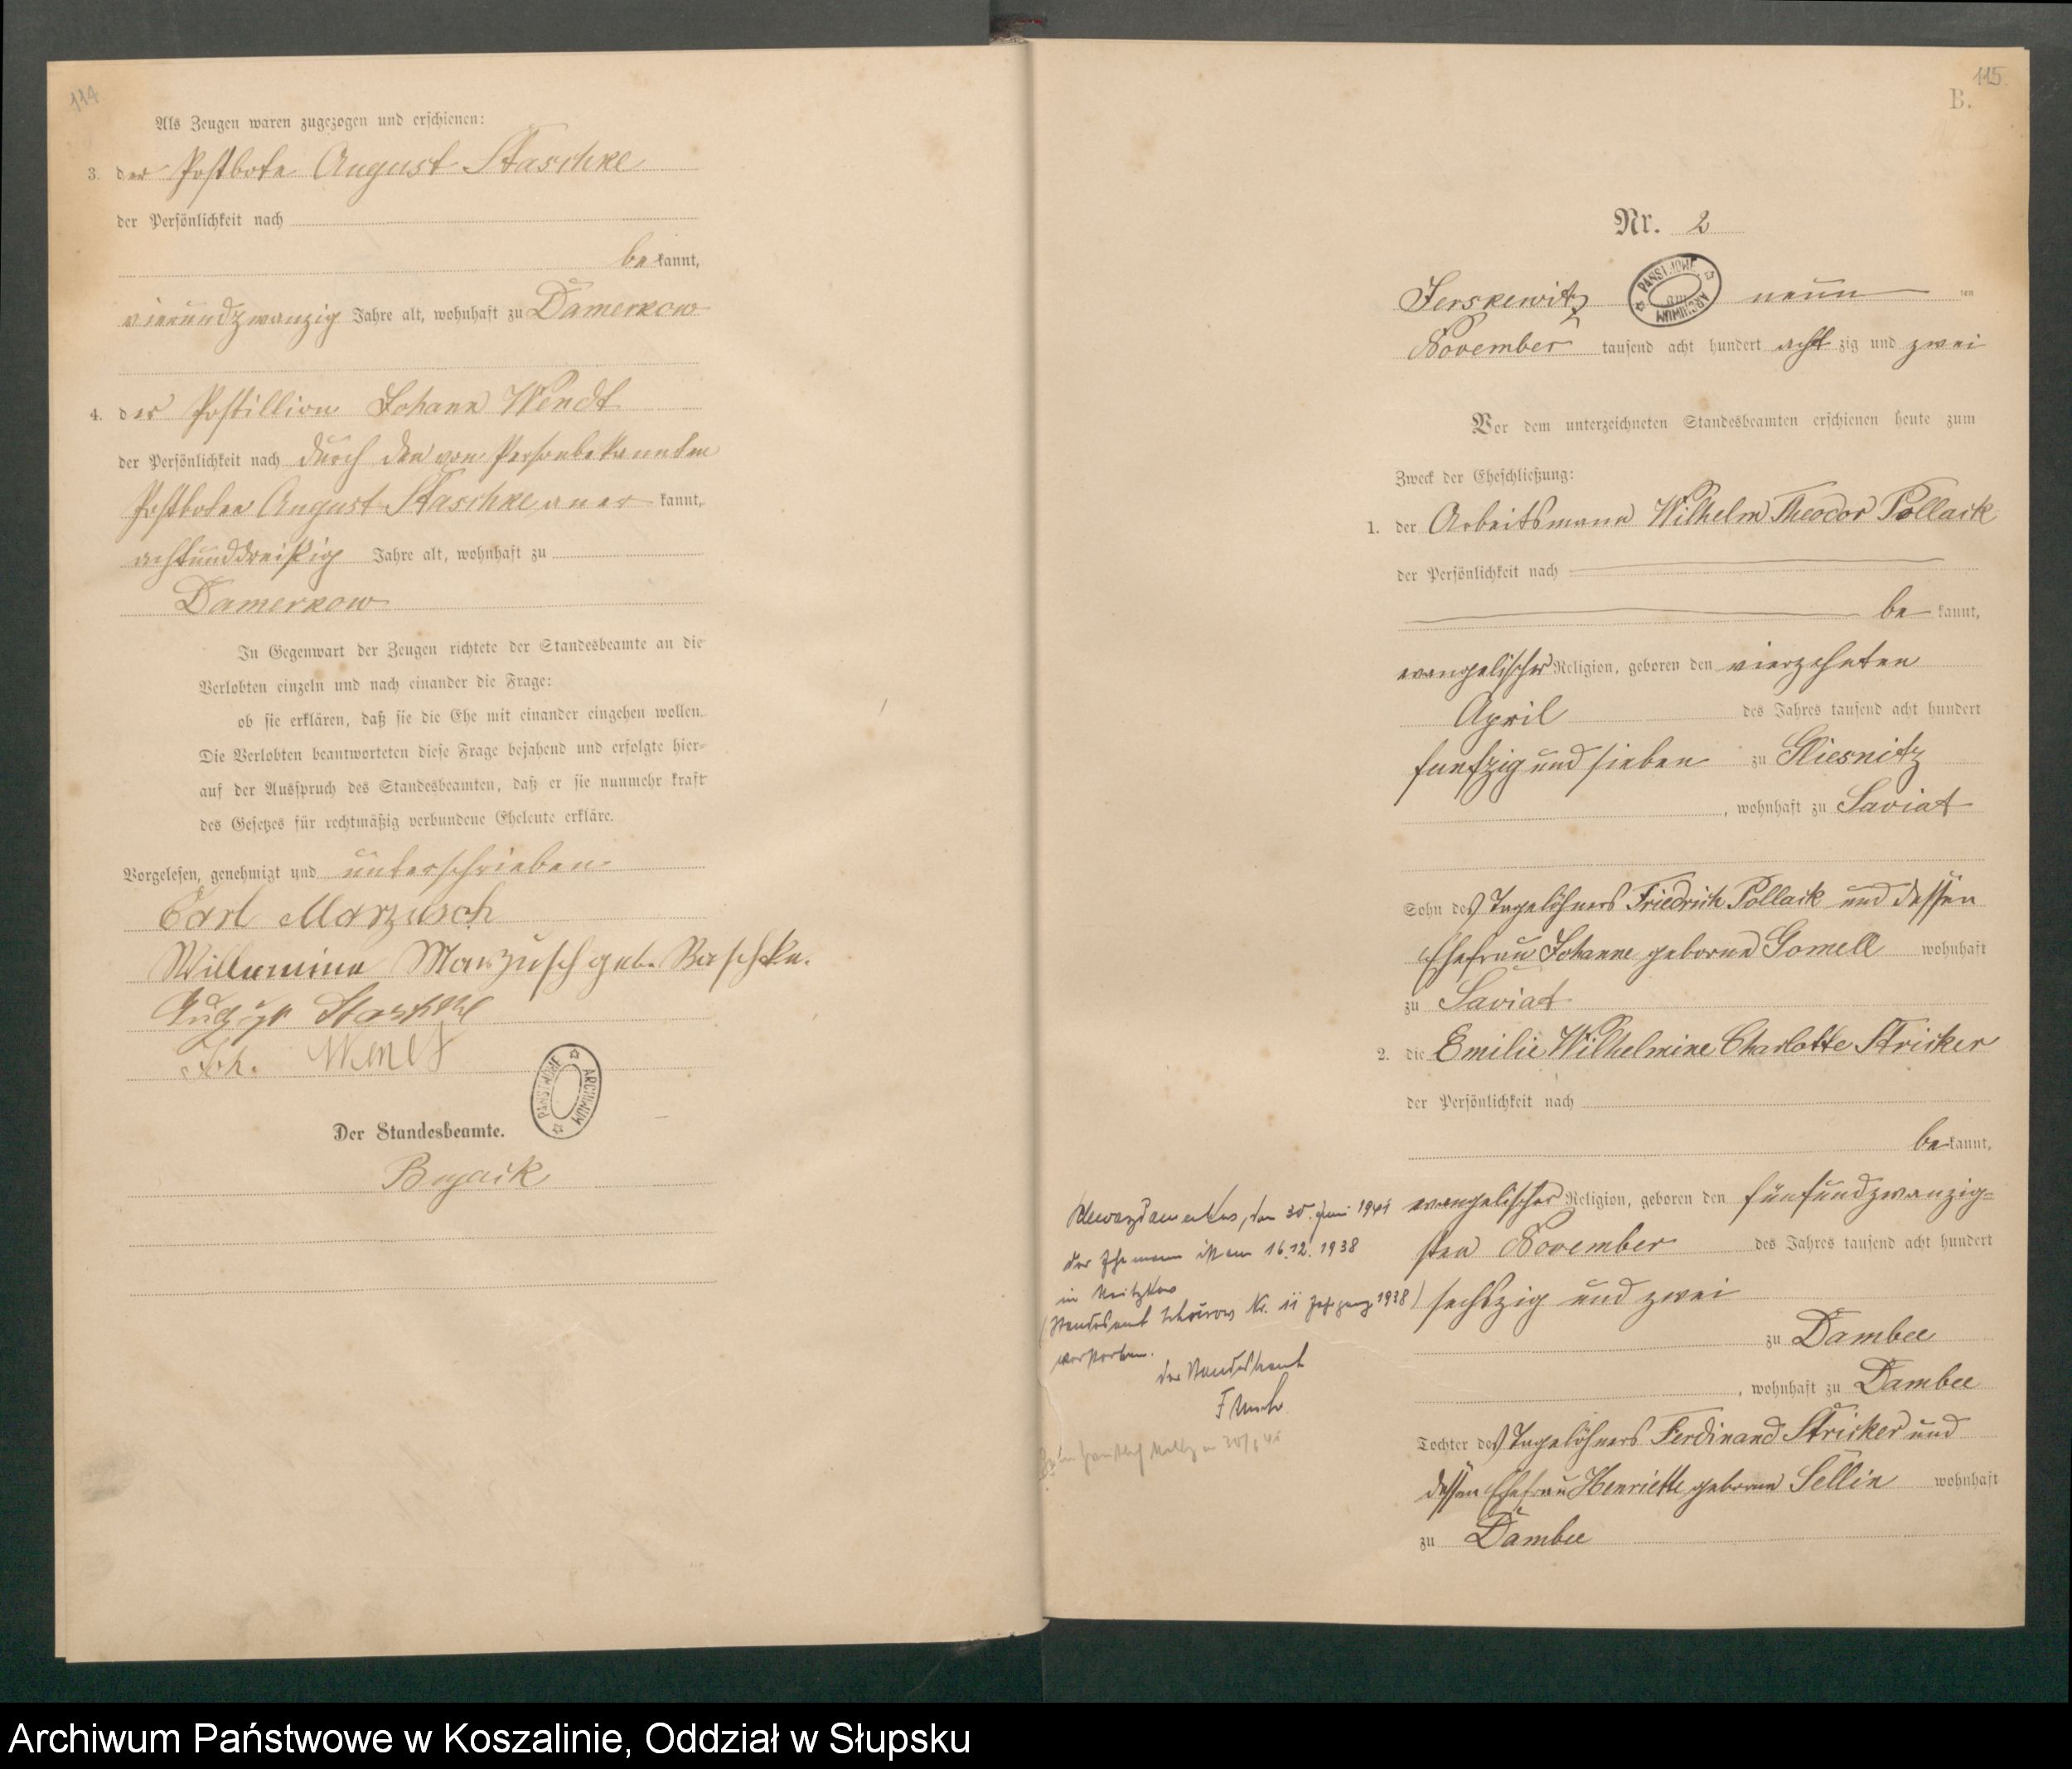 114
Als Zeugen waren zugezogen und erschienen:
3. der Postbote August Staschke
der Persönlichkeit nach
be kannt,
vierundzwanzig Jahre alt, wohnhaft zu Damerkow
4. der Postillion Johann Wendt
der Persönlichkeit nach durch den von Person bekannten
Postboten August Staschke aner kannt,
achtunddreißig Jahre alt, wohnhaft zu
Damerkow
In Gegenwart der Zeugen richtete der Standesbeamte an die
Verlobten einzeln und nach einander die Frage:
ob sie erklären, daß sie die Ehe mit einander eingehen wollen.
Die Verlobten beantworteten diese Frage bejahend und erfolgte hier-
auf der Ausspruch des Standesbeamten, daß er sie nunmehr kraft
des Gesetzes für rechtmäßig verbundene Eheleute erkläre.
Vorgelesen, genehmigt und unterschrieben
Carl Marzusch
Marzusch geb. Raschke.
Joh. Wendt
PAŃSTWOWE ARCHIWUM
Der Standesbeamte.
115
B.
Nr. 2
Jerskewitz neun ten
PAŃSTWOWE ARCHIWUM
November tausend acht hundert acht zig und zwei
Vor dem unterzeichneten Standesbeamten erschienen heute zum
Zweck der Eheschließung:
1. der Arbeitsmann Wilhelm Theodor Pollack
der Persönlichkeit nach
be kannt,
evangelischer Religion, geboren den vierzehnten
April des Jahres tausend acht hundert
funfzig und sieben zu Gliesnitz
, wohnhaft zu Saviat
Sohn des Tagelöhners Friedrich Pollack und dessen
Ehefrau Johanne geborne Gomell wohnhaft
zu Saviat
2. die Emilie Wilhelmine Charlotte Stricker
der Persönlichkeit nach
be kannt,
evangelischer Religion, geboren den fünfundzwanzig=
sten November des Jahres tausend acht hundert
sechszig und zwei
zu Dambee
, wohnhaft zu Dambee
Tochter des Tagelöhners Ferdinand Stricker und
dessen Ehefrau Henriette geborne Sellin wohnhaft
zu Dambee
den 30. Juni 1941
Der Ehemann ist am 16.12.1938
in
(Standesamt Nr. 11 1938)
verstorben.
Der Standesbeamte
Archiwum Państwowe w Koszalinie, Oddział w Słupsku